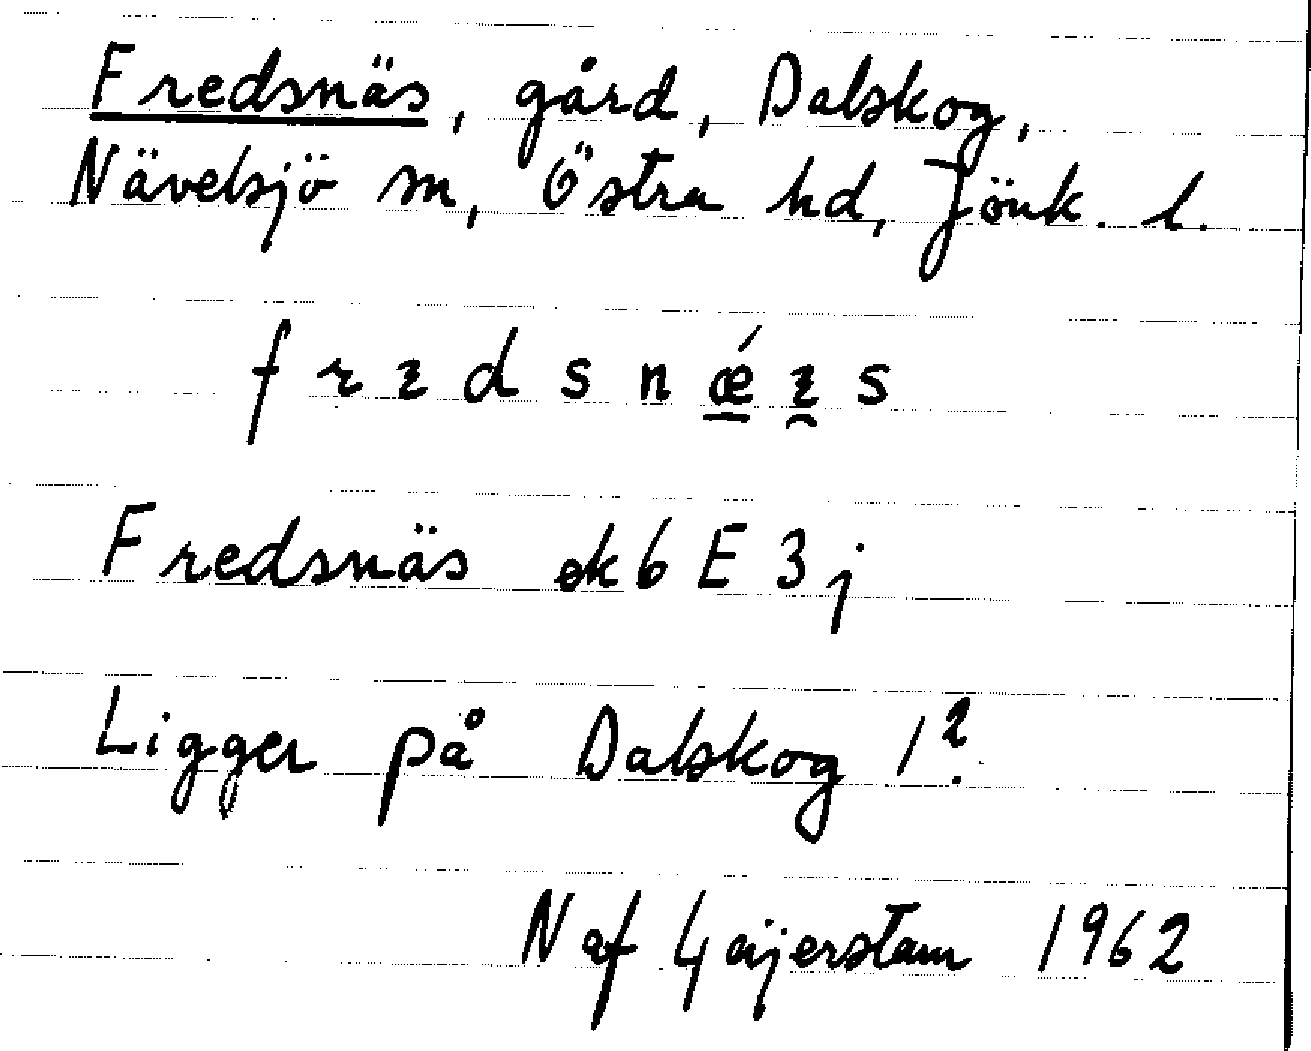 Fredsnäs, gård, Dalskog,
Nävelsjö sn, Östra hd, Jönk. l.
frɛdsnǽɛs
Fredsnäs ek 6 E 3 j
Ligger på Dalskog 1²
N af Geijerstam 1962